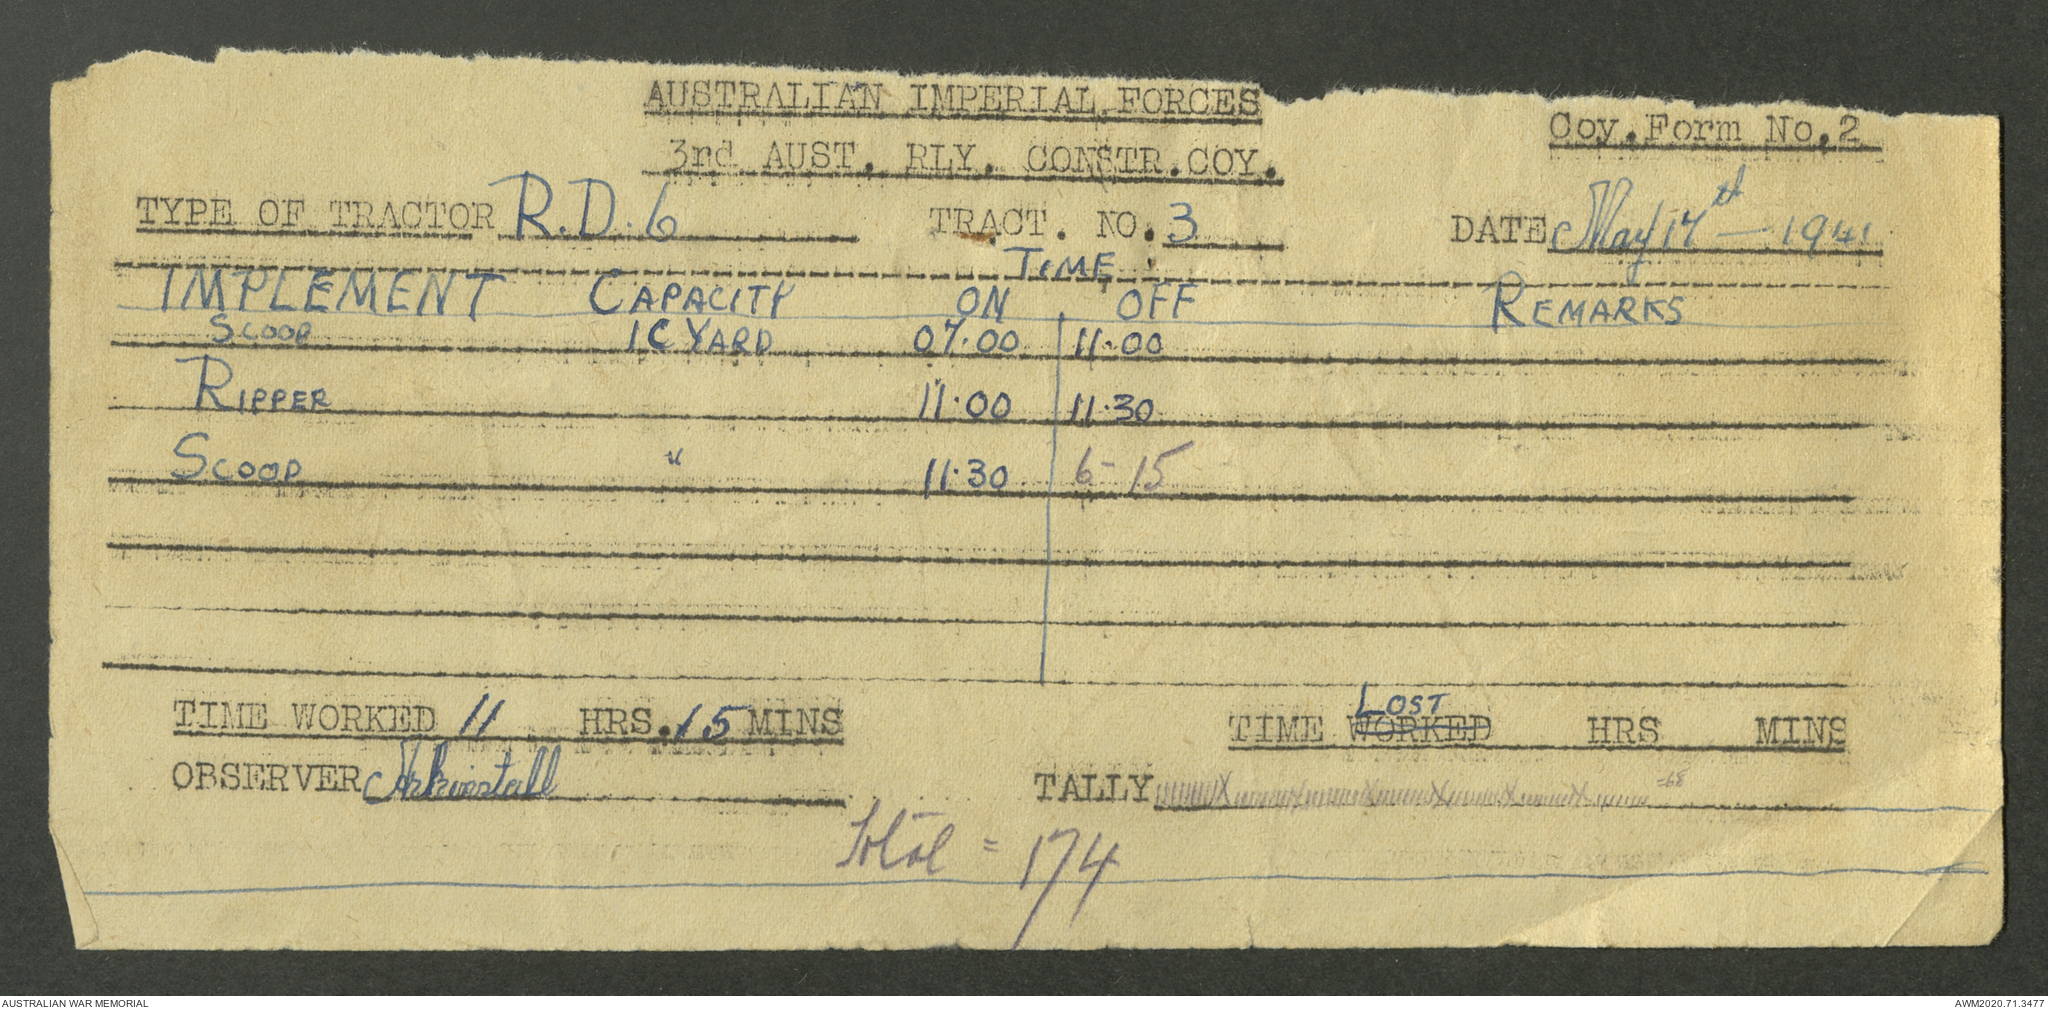 AUSTRALIAN IMPERIAL FORCES
Coy. Form No. 2
3rd AUST. RLY. CONSTR. COY.
TYPE OF TRACTOR R.D.6 TRACT. NO. 3 DATE May 17th - 1941
TIME
IMPLEMENT CAPACITY ON OFF REMARKS
SCOOP 1C YARD 07.00 11.00
RIPPER 11.00 11.30
SCOOP " 11.30 6-15
TIME WORKED 11 HRS. 15 MINS TIME WORKED LOST HRS MINS
OBSERVER TALLY =68
Total = 174
AUSTRALIAN WAR MEMORIAL AWM2020.71.3477